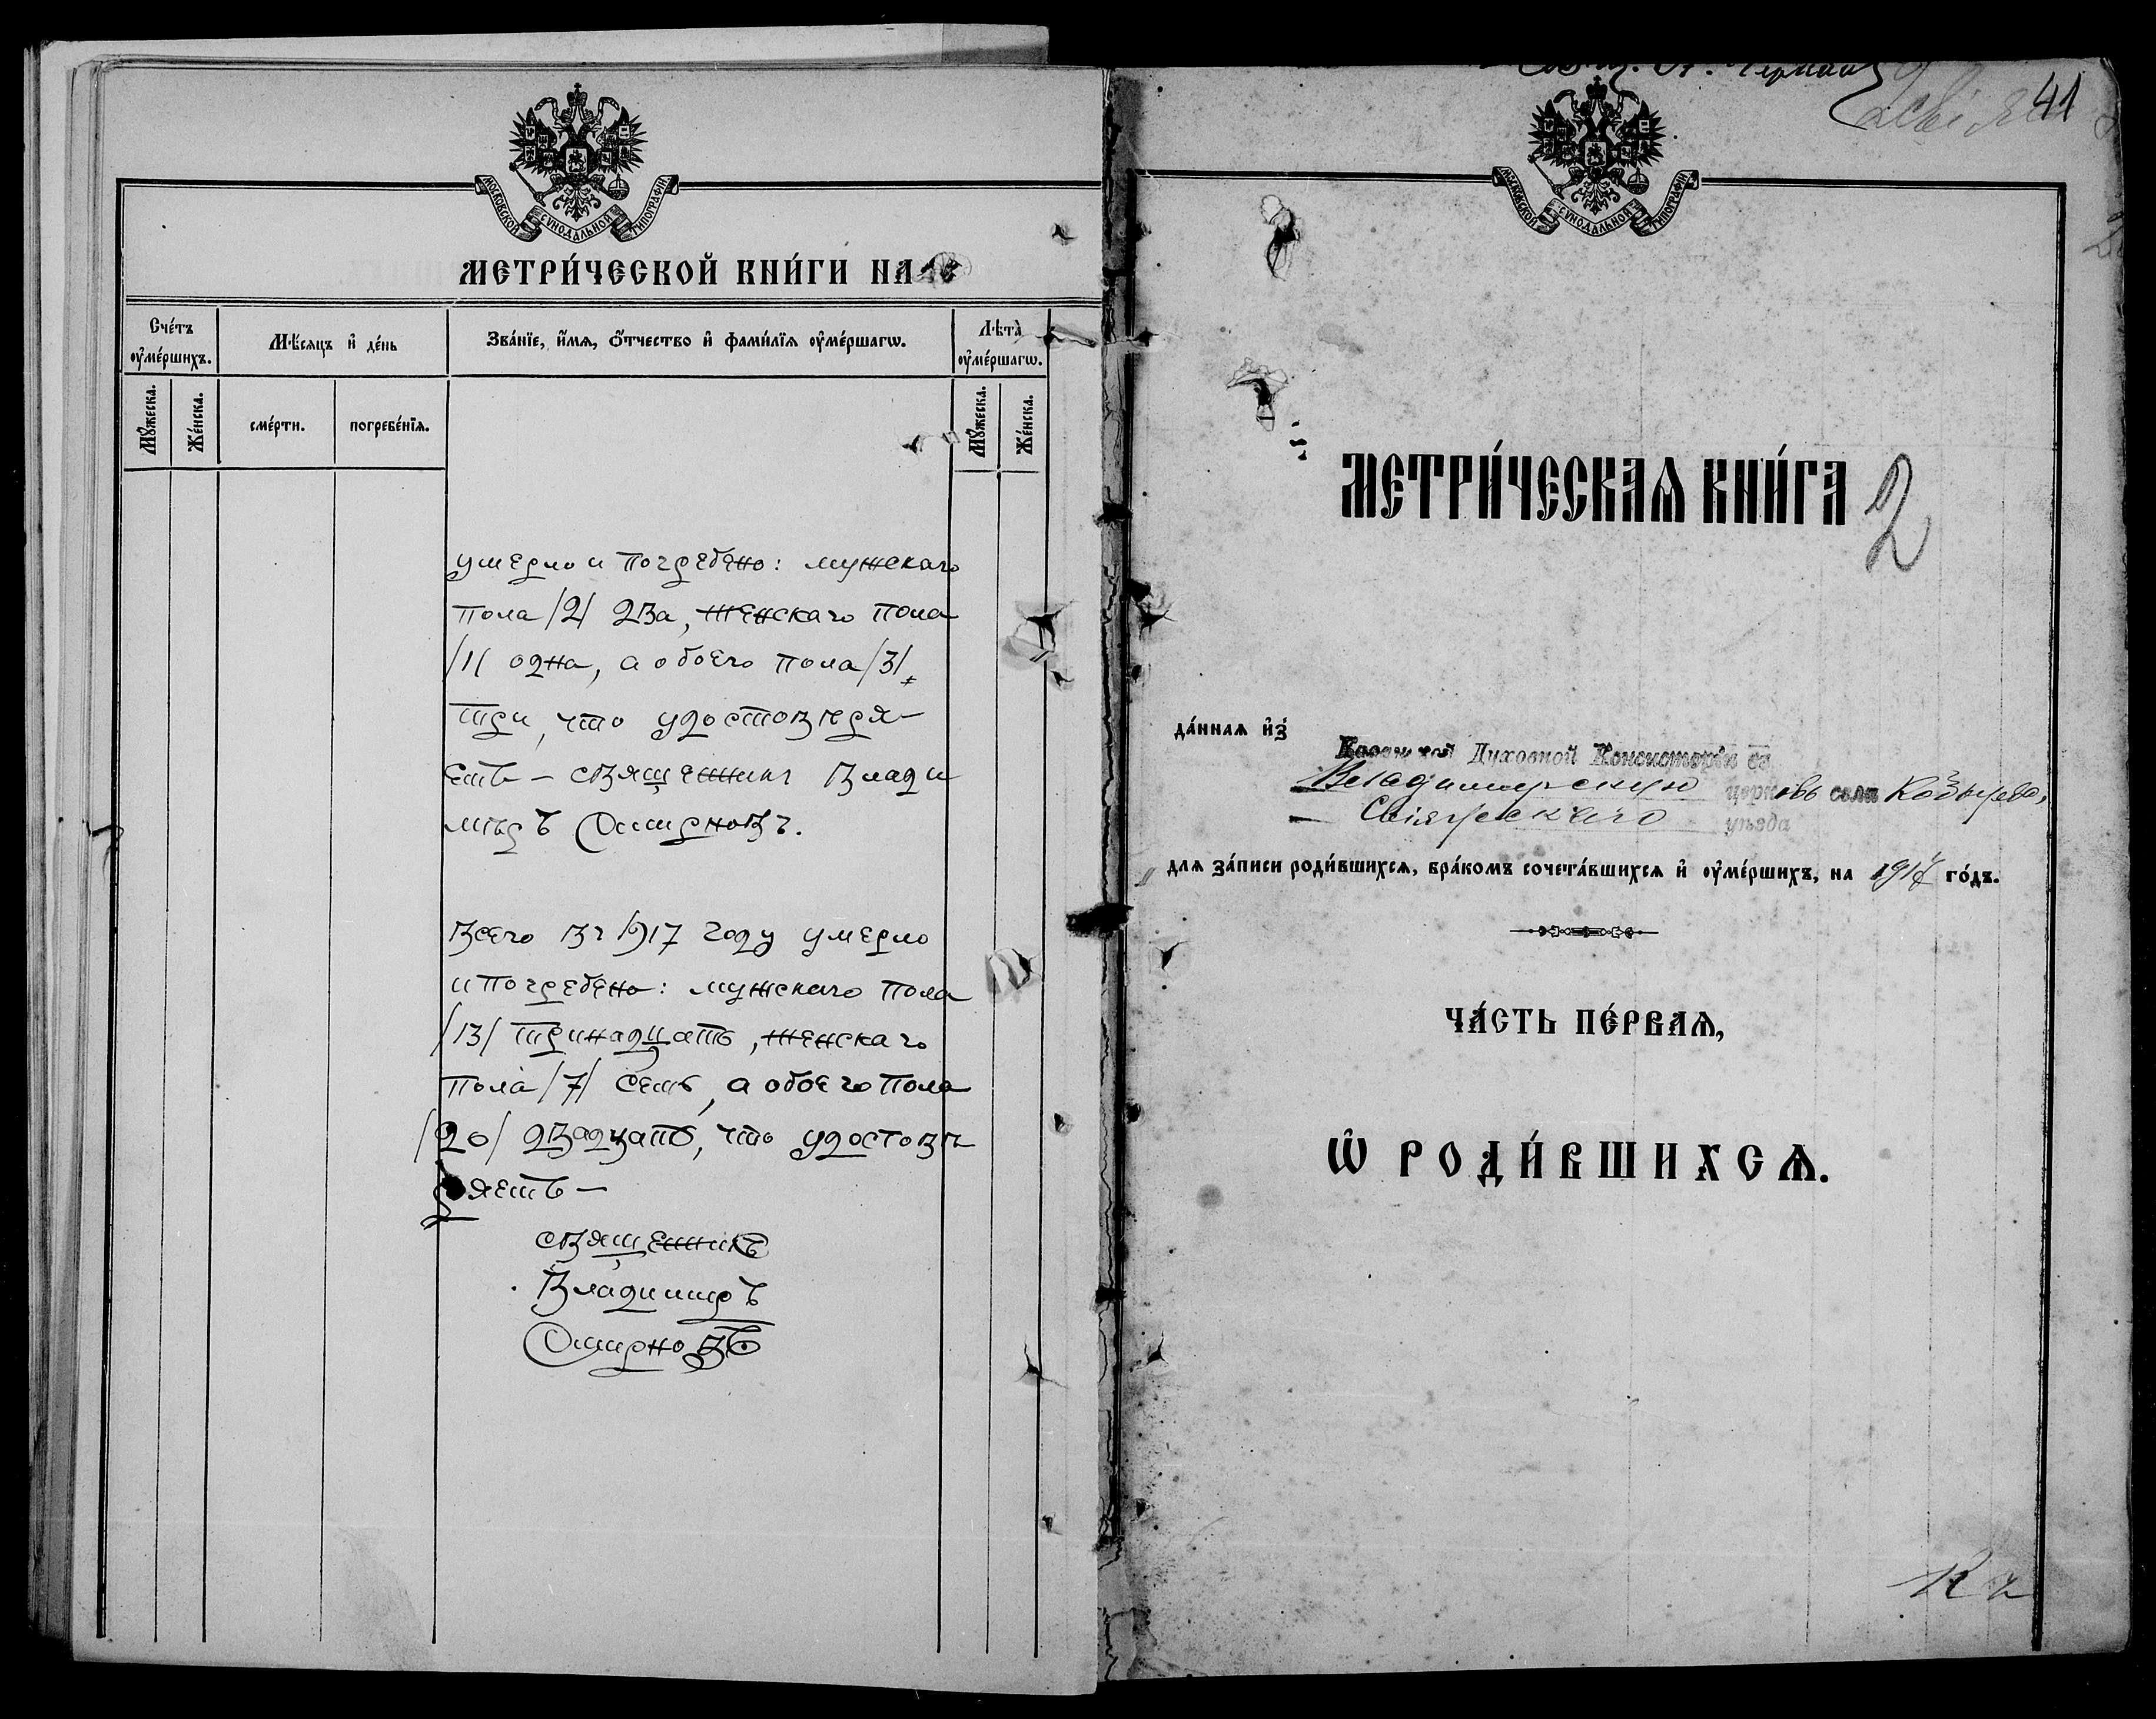 МОСКОВСКОЙ СѴНОДАЛЬНОЙ ТИПОГРАФІИ
МЕТРИ́ЧЕСКОЙ КНИ́ГИ НА
Сче́тъ оу҆ме́ршихъ.
Мѣ́сяцъ и҆ де́нь
Зва́нїе, и҆́мѧ, ѻ҆́тчество и҆ фами́лїѧ оу҆ме́ршагѡ.
Лѣ́та оу҆ме́ршагѡ.
Мꙋ́жеска.
Же́нска.
сме́рти.
погребе́нїѧ.
Мꙋ́жеска.
Же́нска.
умерло и погребено: мужскаго
пола /2/ два, женскаго пола
/1/ одна, а обоего пола /3/
три, что удостовѣря-
етъ – священникъ Влади
миръ Смирновъ.
Всего въ 1917 году умерло
и погребено: мужскаго пола
/13/ тринадцать, женскаго
пола /7/ семь, а обоего пола
/20/ двадцать, что удостовѣ
ряетъ –
священникъ
Владимиръ
Смирновъ
41
МОСКОВСКОЙ СѴНОДАЛЬНОЙ ТИПОГРАФІИ
МЕТРИ́ЧЕСКАѦ КНИ́ГА 2
да́ннаѧ и҆з̾
Казанской Духовной Консисторіи въ
Владимирскую церковь села
Свіяжскаго уѣзда
длѧ за́писи роди́вшихсѧ, бра́комъ сочета́вшихсѧ и҆ оу҆ме́ршихъ, на 1917 го́дъ.
ЧА́СТЬ ПЕ́РВАѦ,
Ѡ҆ РОДИ́ВШИХСѦ.